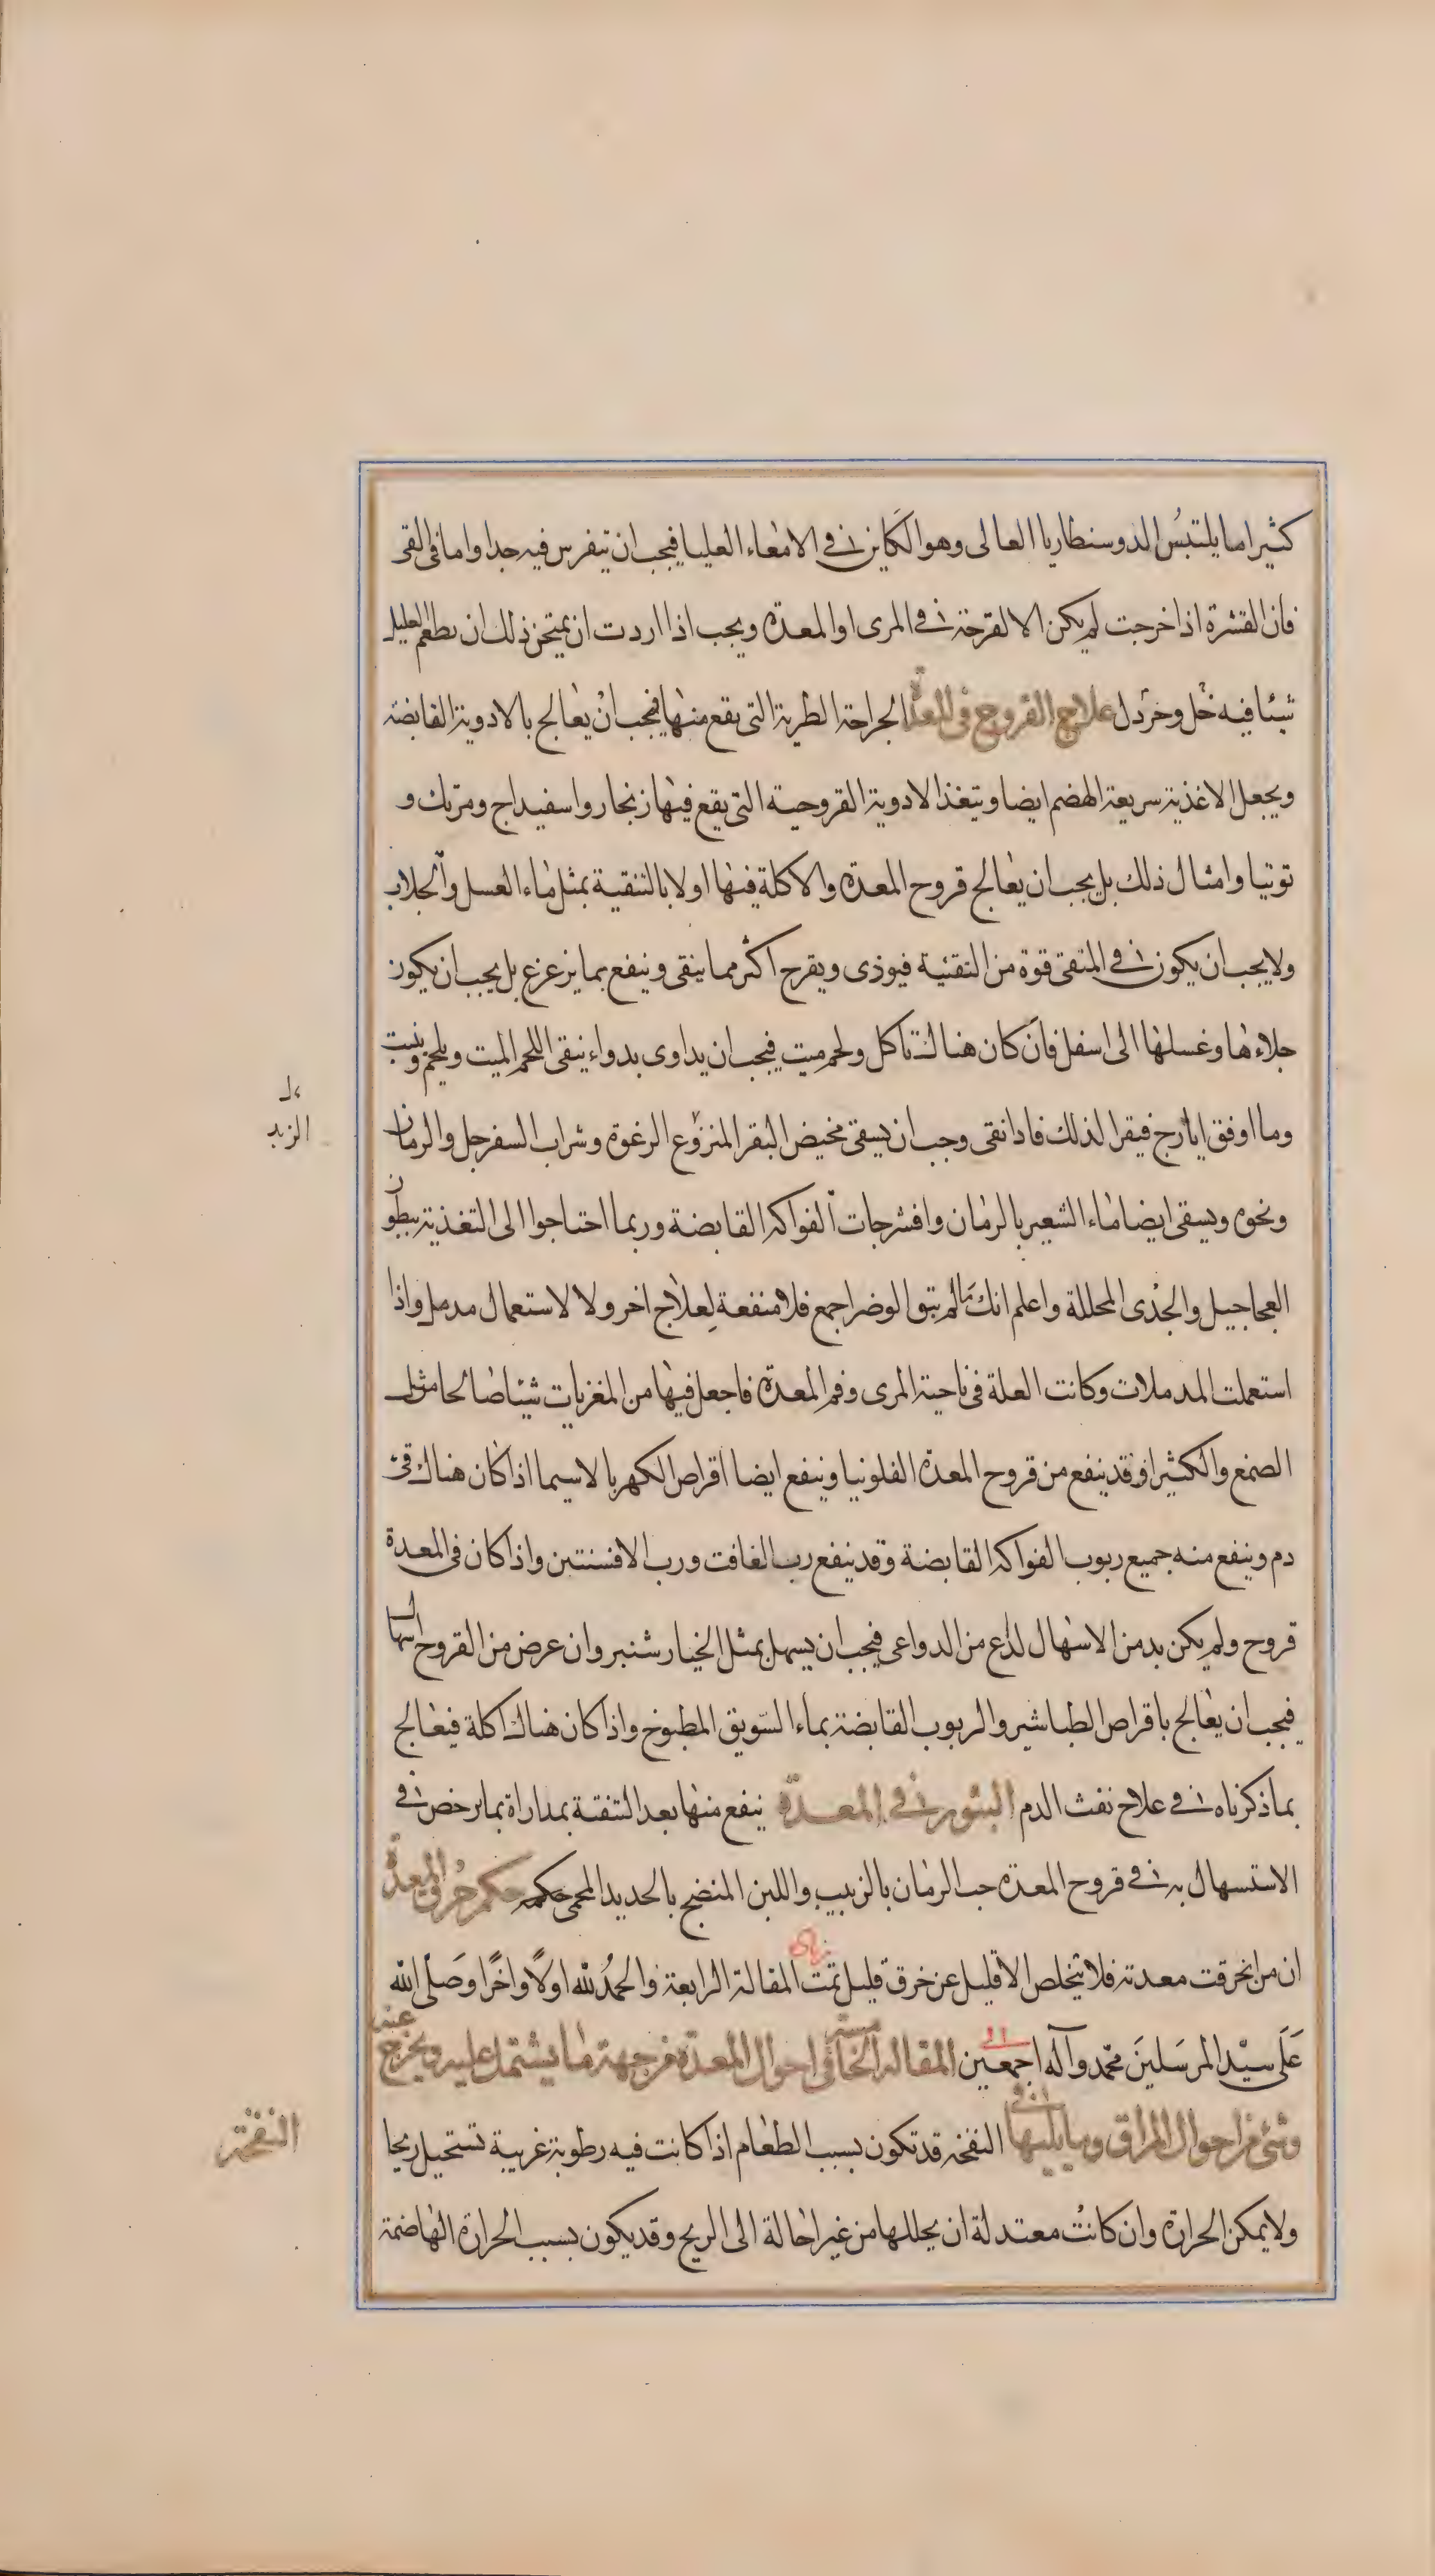 كثيرا ما يلتبس الدوسنطاريا العالى وهو الكاين فى الامعاء العليا فيجب ان يتفرس فيه جدا واما فى القى
فان القشرة اذا خرجت لم يكن الا لقرحة فى المرى او المعدة ويجب اذا اردت ان يمتحن ذلك ان يطعم العليل
شيئا فيه خل وخردل علاج القروح فى المعدة الجراحة الطرية التى يقع منها فيجب ان يعالج بالادوية القابضة
ويجعل الاغذية سريعة الهضم ايضا ويتغذ الادوية القروحية التى يقع فيها زنجار واسفيداج ومرتك و
توتيا وامثال ذلك بل يجب ان يعالج قروح المعدة والاكلة فيها اولا بالتنقية بمثل ماء العسل والجلاب
ولا يجب ان يكون فى المنقى قوة من التقنية فيوذى ويقرح اكثر مما ينقى وينفع بما يزعزع بل يجب ان يكون
جلاءها وغسلها الى اسفل فان كان هناك تاكل ولحم ميت فيجب ان يداوى بدواء ينقى اللحم الميت ويلحم وينبت
وما اوفق ايارج فيقرا لذلك فاذا نقى وجب ان يسقى مخيض البقر المنزوع الرغوة وشراب السفرجل والرمان
ونحوه ويسقى ايضا ماء الشعير بالرمان وافشرجات الفواكه القابضة وربما احتاجوا الى التغذية ببطون
العجاجيل والجدى المحللة واعلم انك ما لم تنق الوضر اجمع فلا منفعة لعلاج اخر ولا لاستعمال مدمل واذا
استعملت المدملات وكانت العلة فى ناحية المرى وفم المعدة فاجعل فيها من المغريات شيئا صالحا مثل
الصمغ والكثيرا وقد ينفع من قروح المعدة الفلونيا وينفع ايضا اقراص الكهربا لاسيما اذا كان هناك قئ
دم وينفع منه جميع ربوب الفواكه القابضة وقد ينفع رب الغافت ورب الافسنتين واذا كان فى المعدة
قروح ولم يكن بد من الاسهال لداع من الدواعى فيجب ان يسهل بمثل الخيار شنبر وان عرض من القروح اسهال
فيجب ان يعالج باقراص الطباشير والربوب القابضة بماء السويق المطبوخ واذا كان هناك اكلة فيعالج
بما ذكرناه فى علاج نفث الدم البثور فى المعدة ينفع منها بعد التنقية بمداراة بما يرخص فى
الاستسهال به فى قروح المعدة حب الرمان بالزبيب واللبن المنضج بالحديد المحمى حكمه حكم خرق المعدة
ان من انخرقت معدته فلا يتخلص الا قليل عن خرق قليل تمت المقالة الرابعة والحمد لله اولا واخرا وصلى الله
على سيد المرسلين محمد وآله اجمعين المقالة الخامسة فى احوال المعدة من جهة ما يشتمل عليه ويخرج عنه
وشئ من احوال المراق وما يليها النفخة قد تكون بسبب الطعام اذا كانت فيه رطوبة غريبة تستحيل ريحا
ولا يمكن الحرارة وان كانت معتدلة ان يحللها من غير احالة الى الريح وقد يكون بسبب الحرارة الهاضمة
الزبد
النفخة